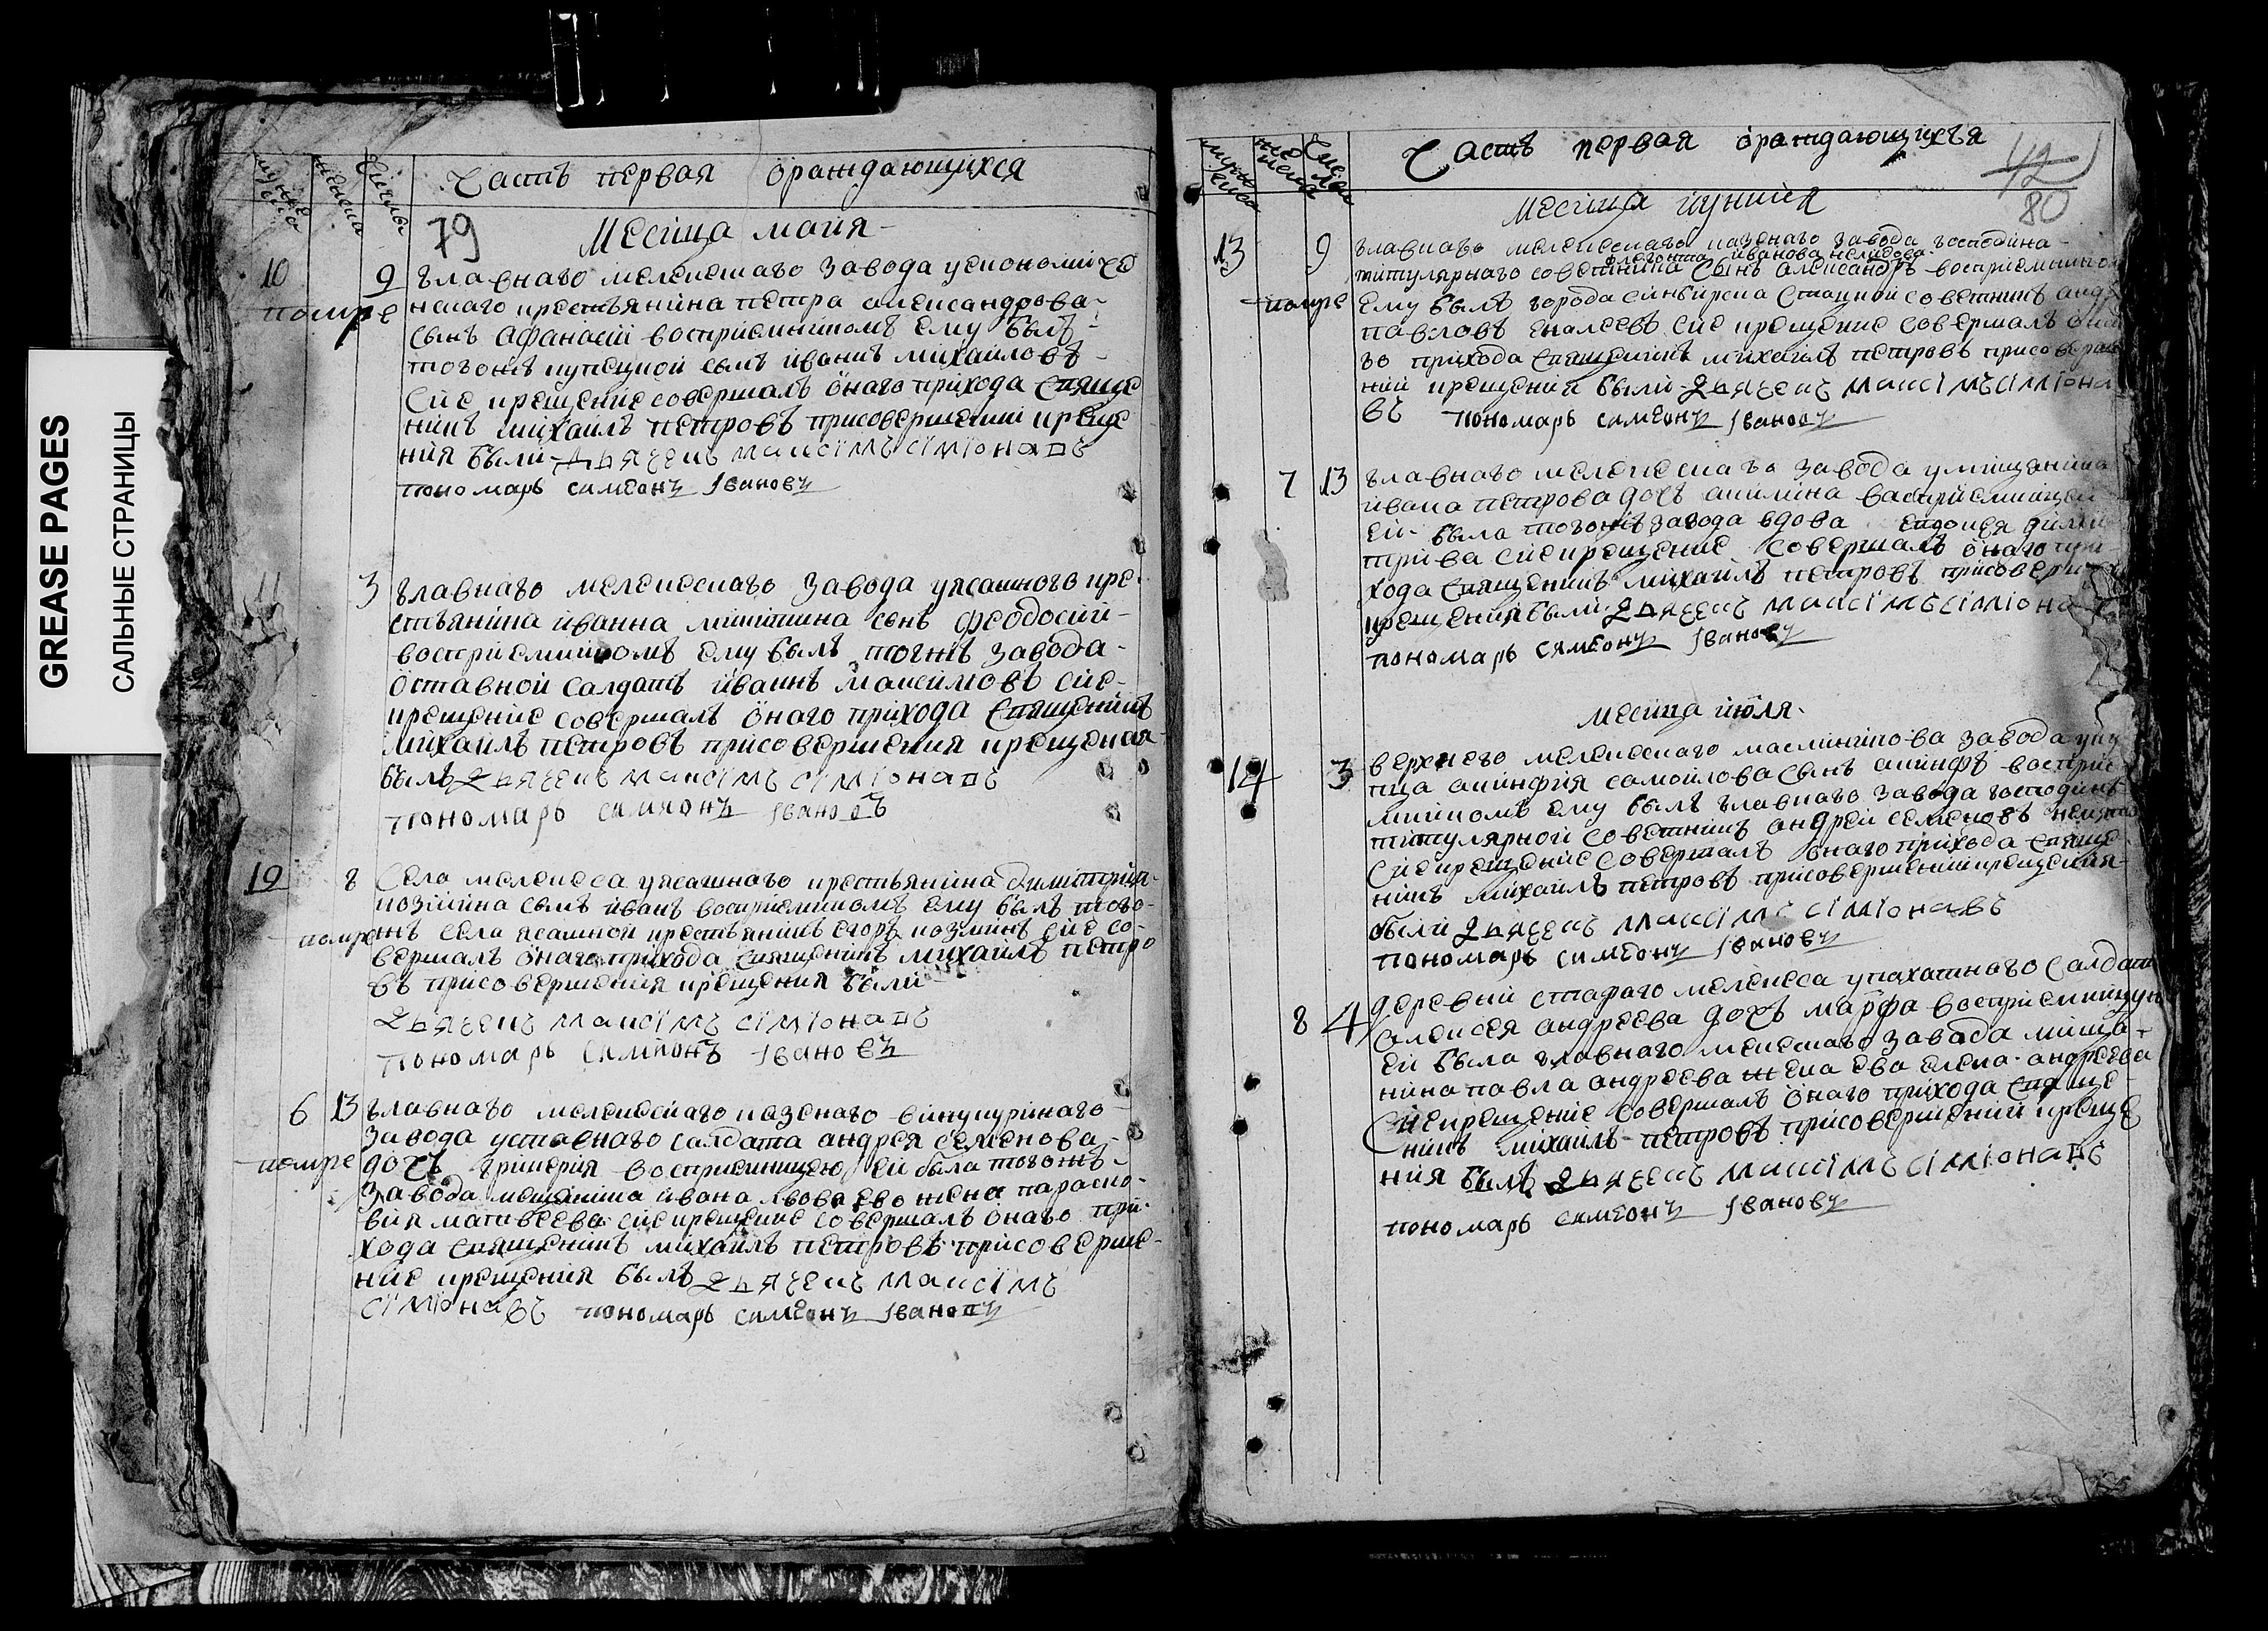 GREASE PAGES
САЛЬНЫЕ СТРАНИЦЫ
мужеска
женска
числы
Часть первая ораждающихся
79
Месяца маия
10 9 главнаго мелекескаго завода уекономиче
помре нскаго крестьянина петра александрова
сынъ афанасий восприемникомъ ему былъ
тогожъ купецкой сынъ иваннъ михайловъ
Сие крещение совершалъ онаго прихода священ
никъ михаилъ петровъ присовершении креще
ния были дьячекъ максимъ симионавъ
пономарь симеонъ Ивановъ
3 главнаго мелекескаго завода уясашного кре
стьянина иванна микитина сынъ феодосий
восприемникомъ ему былъ тогжъ завода
оставной салдатъ иваннъ максимовъ сие
крещение совершалъ онаго прихода священникъ
михаилъ петровъ присовершения крещения
былъ дьячекъ максимъ симионавъ
пономарь симионъ Ивановъ
12 8 Села мелекеса уясашнаго крестьянина димитрия
козмина сынъ иванъ восприемникомъ ему былъ того
помре жъ села ясашной крестьянинъ егоръ козминъ сие со
вершалъ онаго прихода священникъ михаилъ петро
въ присовершения крещения были
дьячекъ максимъ симионавъ
пономарь симионъ Ивановъ
6 13 главнаго мелекескаго казенаго винукурннаго
завода уставнаго салдата андрея семенова
помре дочь гликерия восприемницею ей была тогожъ
завода мещанина ивана львова ево жена параско
вия матвеева сие крещение совершалъ онаго при
хода священникъ михаилъ петровъ присоверше
ние крещения былъ дьячекъ максимъ
симионавъ пономарь симеонъ Ивановъ
мужеска
женска
числа
Часть первая ораждающихся
42
80
Месяца иуниея
13 9 главнаго мелекескаго казенаго завода господина
иванова нелидова
титулярнаго советника сынъ александръ восприемником
помре Ему былъ города синбирска статской советникъ анд
павловъ сие крещение совершалъ она
го прихода священникъ михаилъ петровъ присоверше
нии крещений были дьячекъ максимъ симиона
въ пономарь симеонъ Ивановъ
7 13 главнаго мелекескаго завода умищанина
ивана петрова дочь акилина васприемницею
Ей была тогожъ завода вдова димит
трива сие крещение совершалъ онаго при
хода священникъ михаилъ петровъ присоверше
крещения были дьячекъ максимъ симиона
пономарь симеонъ Ивановъ
Месяца июля
14 3 верхнего мелекескаго завода укуп
тца акинфия самоилова сынъ акинфъ восприе
мникомъ ему былъ главнаго завода господинъ
титулярной советникъ андрей семеновъ
Сие крещение совершалъ онаго прихода священ
никъ михаилъ петровъ присовершении крещения
были дьячекъ максимъ симионавъ
пономарь симеонъ Ивановъ
8 4 деревни стараго мелекеса упахатного салдата
алексея андреева дочь марфа восприемницую
Ей была главнаго мелекескаго завода мища
нина павла андреева жена ева андреева
Сие крещение совершалъ онаго прихода священ
никъ михаилъ петровъ присовершении креще
ния былъ дьячекъ максимъ симионавъ
пономарь симеонъ Ивановъ